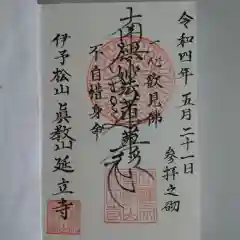 令和四年五月二十一日
参拝之砌
一心欲見佛
南無妙法蓮華経
不自惜身命
伊予松山 眞教山 延立寺